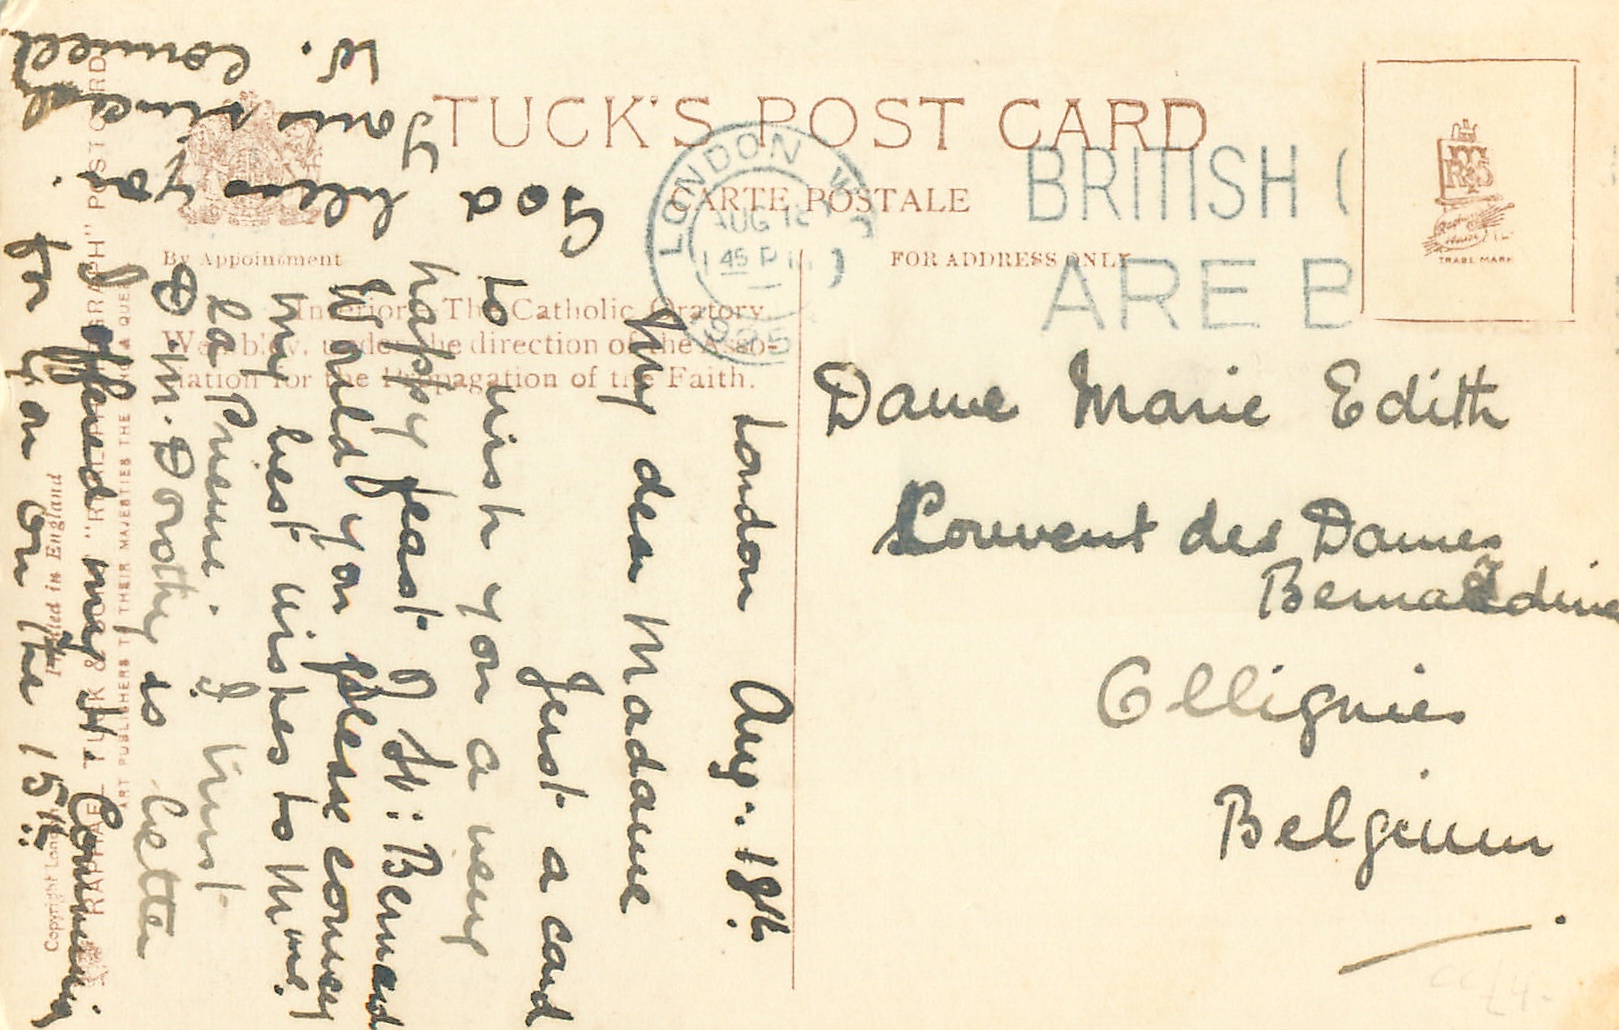 TUCK'S POST CARD
CARTE POSTALE
By Appointment
FOR ADDRESS ONLY
Interior, The Catholic Oratory,
Wembley, under the direction of the Asso-
ciation for the Propagation of the Faith.
LONDON W
AUG 18
1 45 PM
1925
BRITISH
ARE B
TRADE MARK
Dame Marie Edith
Couvent des Dames
Bernardine
Ollignies
Belgium
London Aug. 18th.
My dear Madame
Just a card
to wish you a very
happy feast of St: Bernard
Would you please convey
my best wishes to Mme.
la Prieure. I trust
D. M. Dorothy is better
I offered my H. Communion
for you on the 15th.
God bless you.
Yours sincerely
W.
RAPHAEL TUCK & SONS' "RAPHOTYPE" POSTCARD
ART PUBLISHERS TO THEIR MAJESTIES THE KING & QUEEN
Printed in England
Copyright London